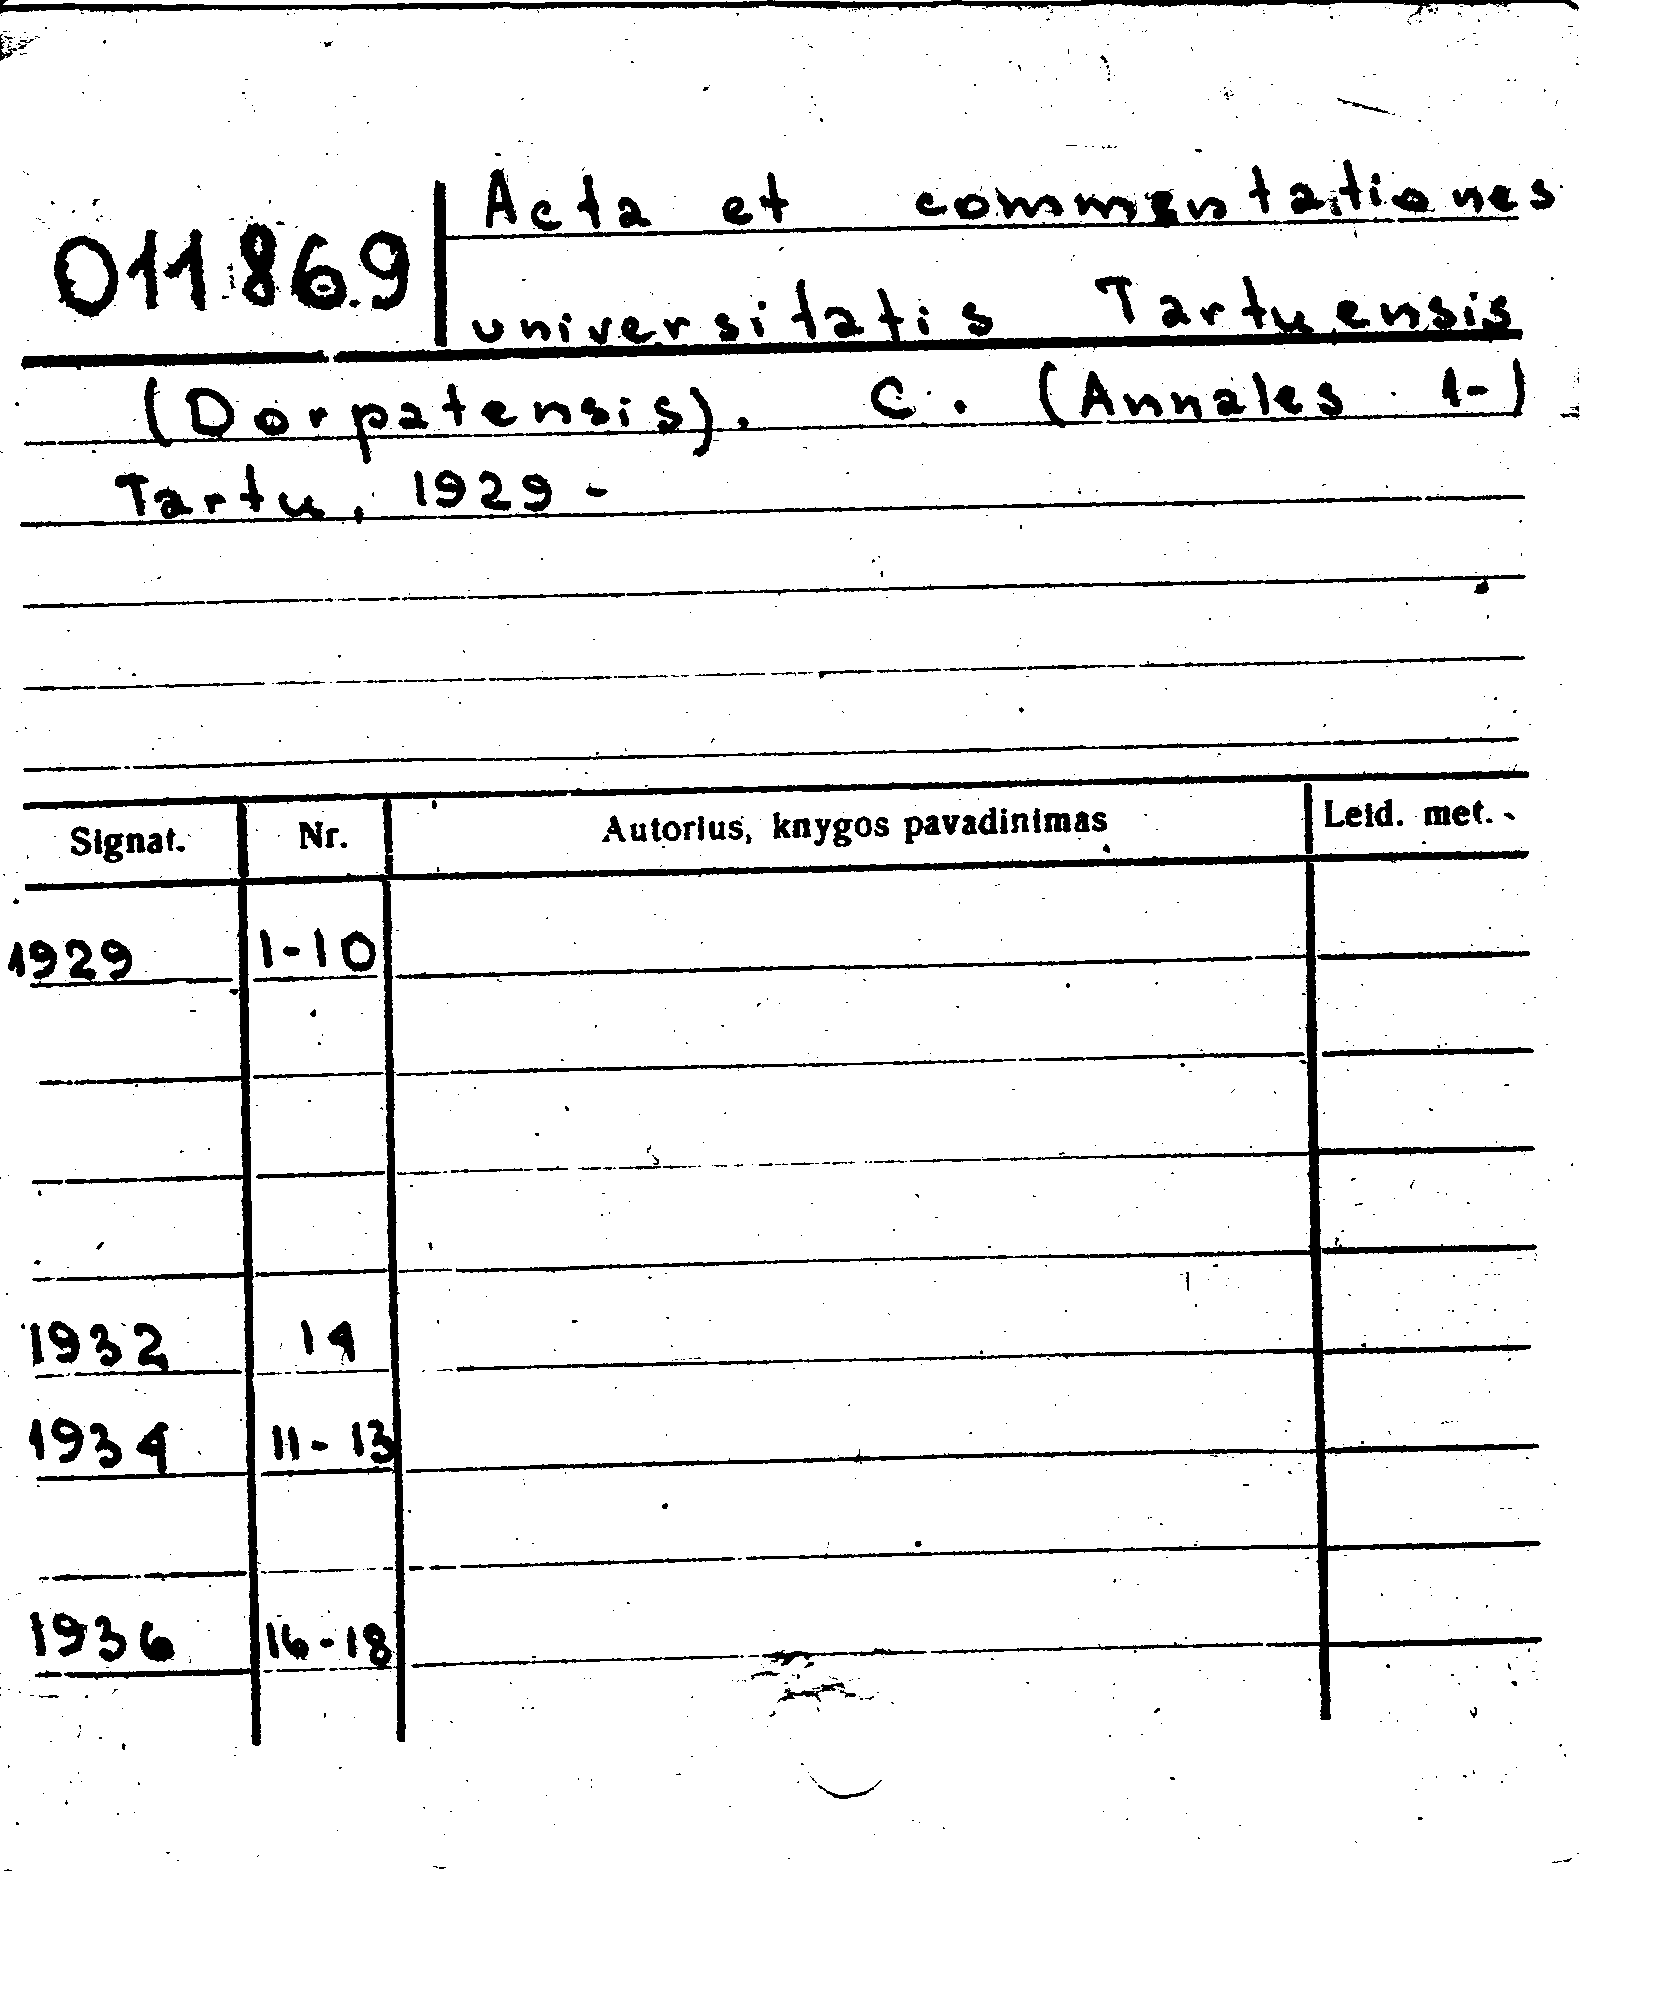 Acta et commentationes
011869
universitatis Tartuensis
(Dorpatensis). C. (Annales 1-)
Tartu, 1929 -
Signat. Nr. Autorius, knygos pavadinimas Leid. met.
1929 1-10
1932 14
1934 11-13
1936 16-18